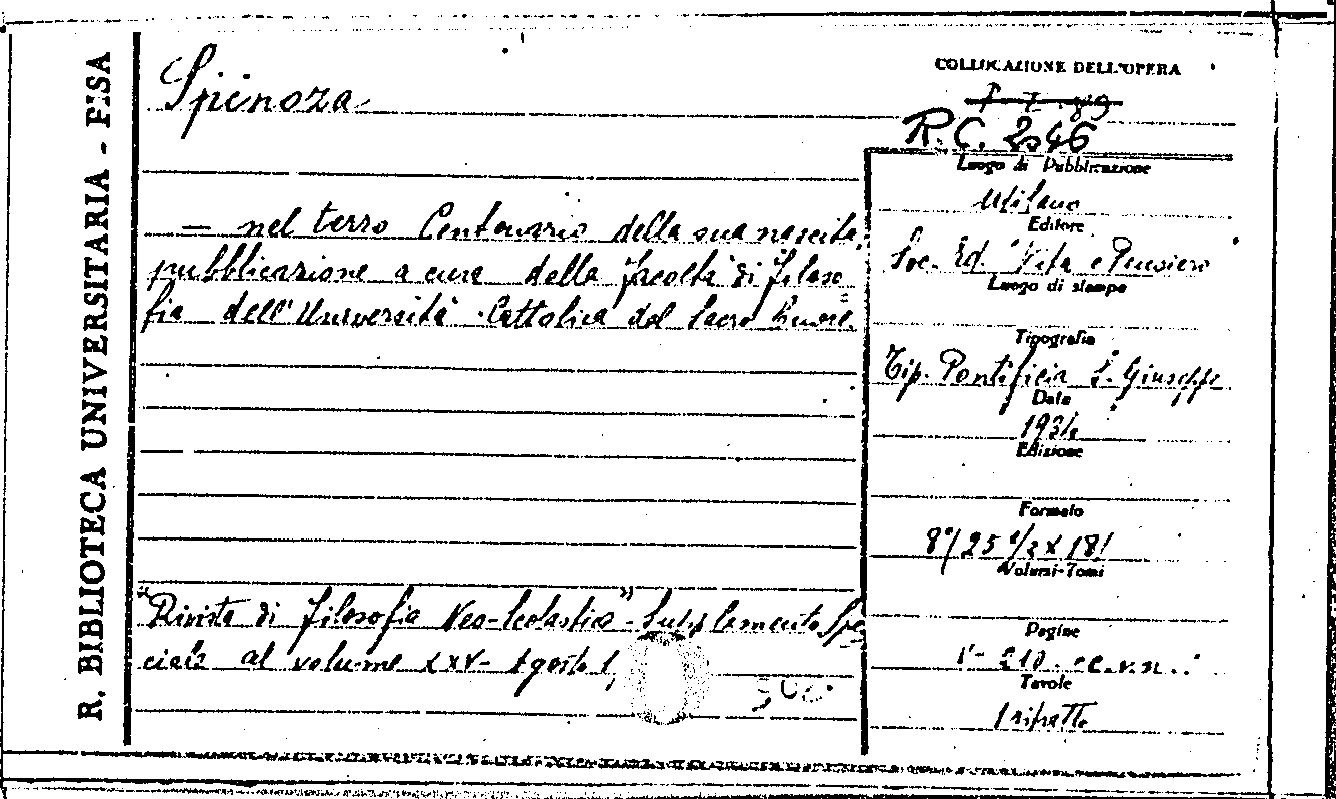 R. BIBLIOTECA UNIVERSITARIA - PISA
Spinoza
— nel terzo Centenario della sua nascita,
pubblicazione a cura della facoltà di filoso=
fia dell'Università Cattolica del Sacro Cuore.
"Rivista di filosofia Neo-Scolastica" - Supplemento Spe=
ciale al volume XXV - Agosto
COLLOCAZIONE DELL'OPERA
R.C. 2046
Luogo di Pubblicazione
Milano
Editore
Soc. Ed. "Vita e Pensiero
Luogo di stampa
Tipografia
Tip. Pontificia S. Giuseppe
Data
1934
Edizione
Formato
8°/25 1/2 x 18/
Volumi-Tomi
Pagine
210
Tavole
1 ritratto